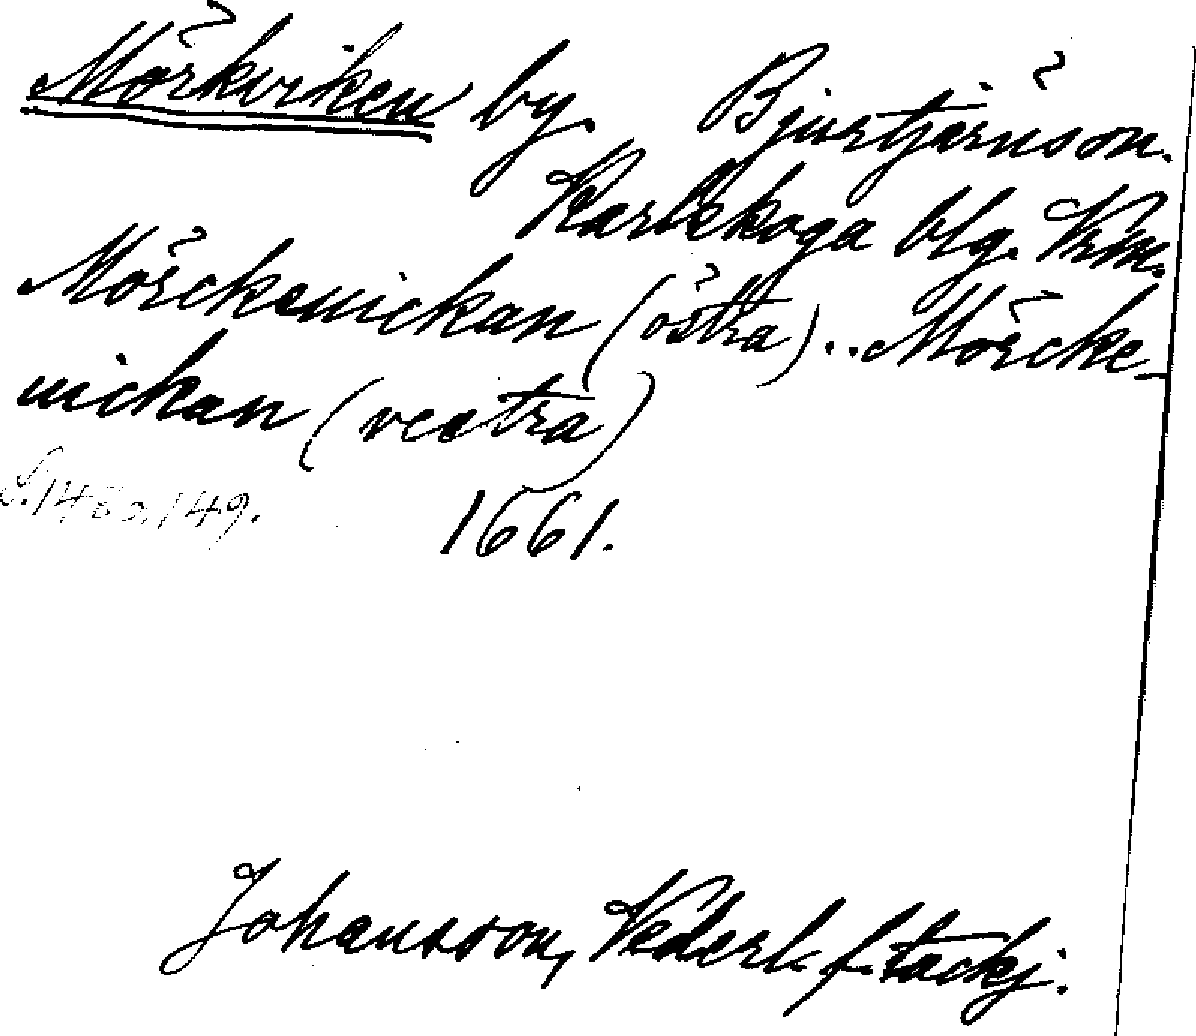 Mörkviken by. Bjurtjärnson.
Karlskoga blg. Vrm.
Mörckewickan (östra)... Mörcke-
wickan (vestra)
S. 148 o. 149. 1661.
Johansson, Vederl. f. tackj.